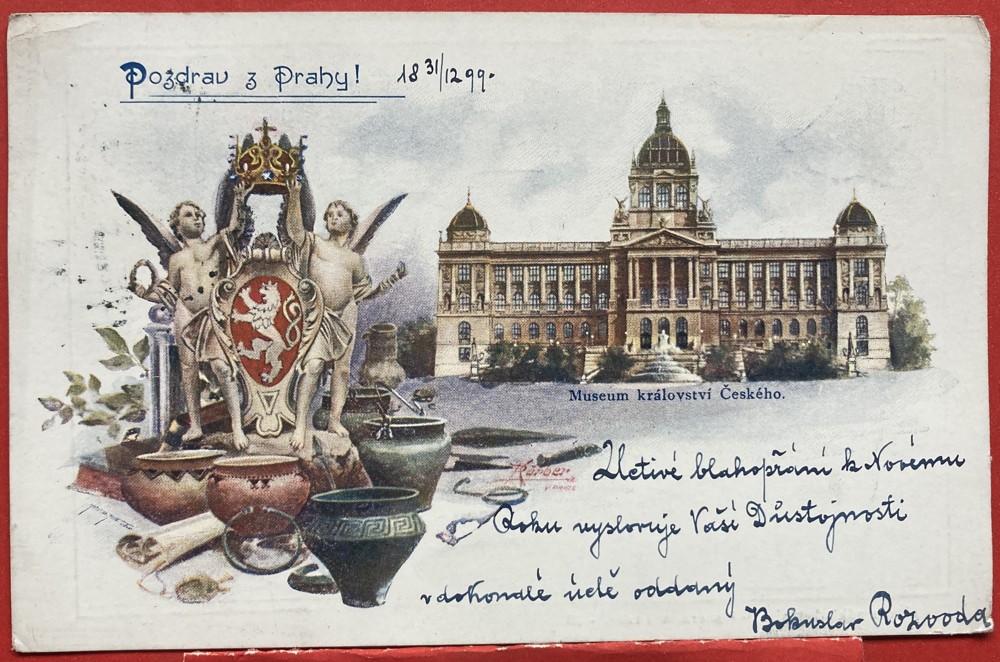 Pozdrav z Prahy! 18 31/12 99.
Museum království Českého.
Körber
Uctivé blahopřání k Novému
Roku vyslovuje Vaší Důstojnosti
v dokonalé úctě oddaný
Bohuslav Rozvoda